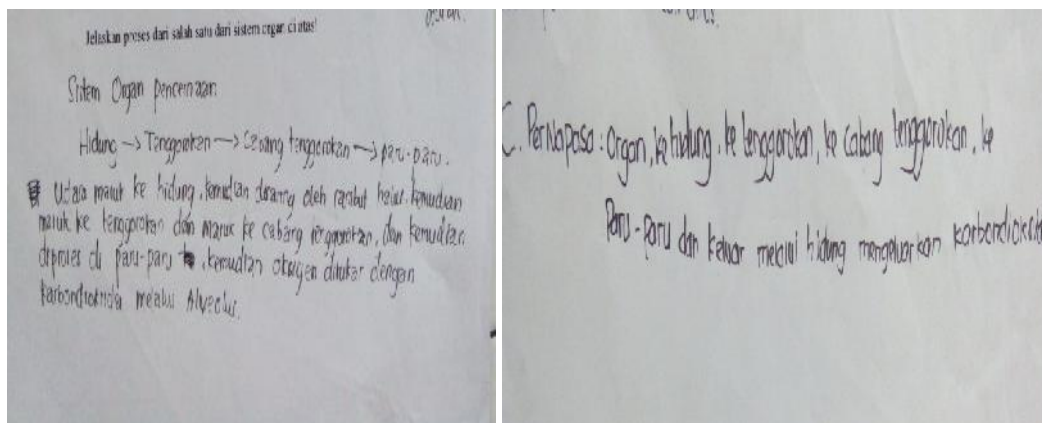 Jelaskan proses dari salah satu dari sistem organ di atas!
Sistem Organ pencernaan
Hidung → Tenggorokan → Cabang tenggorokan → paru-paru.
Udara masuk ke hidung, kemudian disaring oleh rambut halus, kemudian
masuk ke tenggorokan dan masuk ke cabang tenggorokan, dan kemudian
diproses di paru-paru, kemudian oksigen ditukar dengan
karbondioksida melalui Alveolus.
C. Pernapasa : Organ, ke hidung, ke tenggorokan, ke cabang tenggorokan, ke
Paru-Paru dan keluar melalui hidung mengeluarkan karbondioksida